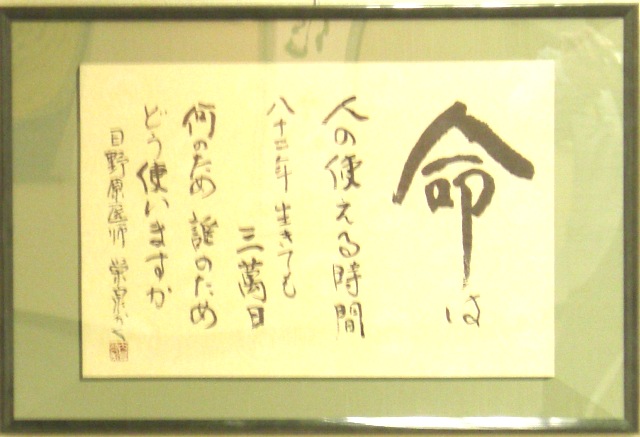 命は
人の使える時間
八十二年 生きても
三萬日
何のため 誰のため
どう使いますか
日野原医師 栄泉かく